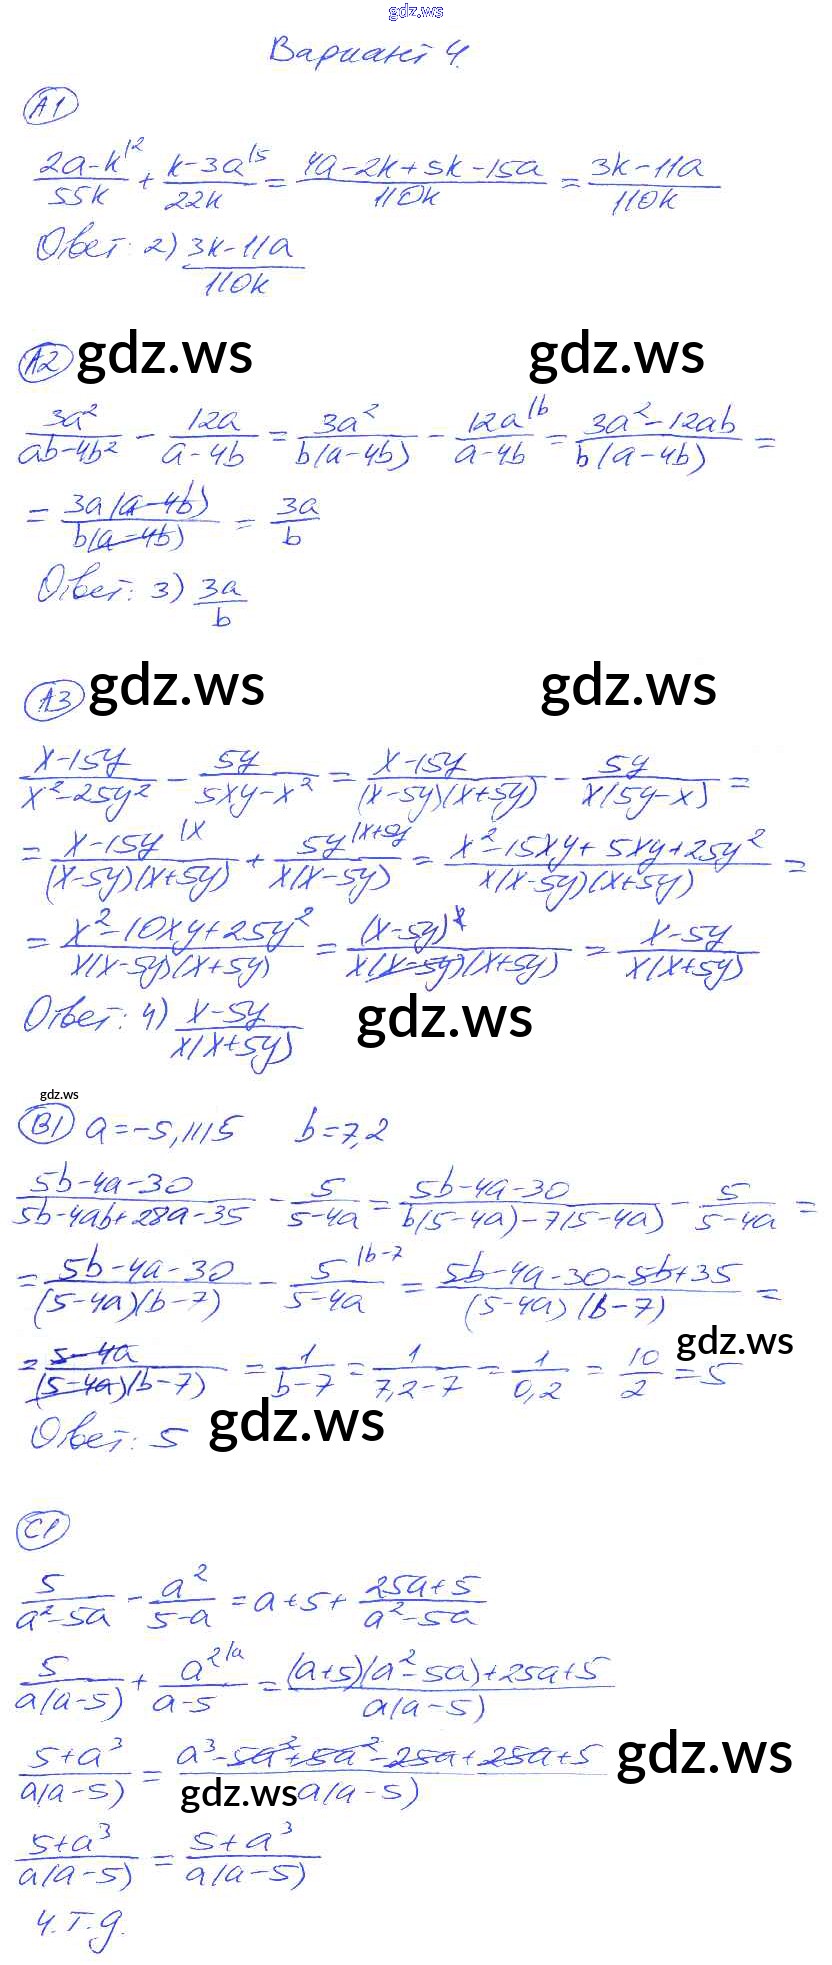 gdz.ws
Вариант 4.
А1
(2a-k)/55k |2 + (k-3a)/22k |5 = (4a-2k+5k-15a)/110k = (3k-11a)/110k
Ответ: 2) (3k-11a)/110k
А2 gdz.ws gdz.ws
3a²/(ab-4b²) - 12a/(a-4b) = 3a²/(b(a-4b)) - 12a/(a-4b) |b = (3a²-12ab)/(b(a-4b)) =
= 3a(a-4b)/(b(a-4b)) = 3a/b
Ответ: 3) 3a/b
А3 gdz.ws gdz.ws
(x-15y)/(x²-25y²) - 5y/(5xy-x²) = (x-15y)/((x-5y)(x+5y)) - 5y/(x(5y-x)) =
= (x-15y)/((x-5y)(x+5y)) |x + 5y/(x(x-5y)) |x+5y = (x²-15xy+5xy+25y²)/(x(x-5y)(x+5y)) =
= (x²-10xy+25y²)/(x(x-5y)(x+5y)) = (x-5y)²/(x(x-5y)(x+5y)) = (x-5y)/(x(x+5y))
Ответ: 4) (x-5y)/(x(x+5y)) gdz.ws
gdz.ws
В1 a=-5,1115 b=7,2
(5b-4a-30)/(5b-4ab+28a-35) - 5/(5-4a) = (5b-4a-30)/(b(5-4a)-7(5-4a)) - 5/(5-4a) =
= (5b-4a-30)/((5-4a)(b-7)) - 5/(5-4a) |b-7 = (5b-4a-30-5b+35)/((5-4a)(b-7)) =
= (5-4a)/((5-4a)(b-7)) = 1/(b-7) = 1/(7,2-7) = 1/0,2 = 10/2 = 5 gdz.ws
Ответ: 5 gdz.ws
С1
5/(a²-5a) - a²/(5-a) = a+5+ (25a+5)/(a²-5a)
5/(a(a-5)) + a²/(a-5) |a = ((a+5)(a²-5a)+25a+5)/(a(a-5))
(5+a³)/(a(a-5)) = (a³-5a³+5a²-25a+25a+5)/(a(a-5)) gdz.ws gdz.ws
(5+a³)/(a(a-5)) = (5+a³)/(a(a-5))
Ч.Т.Д.